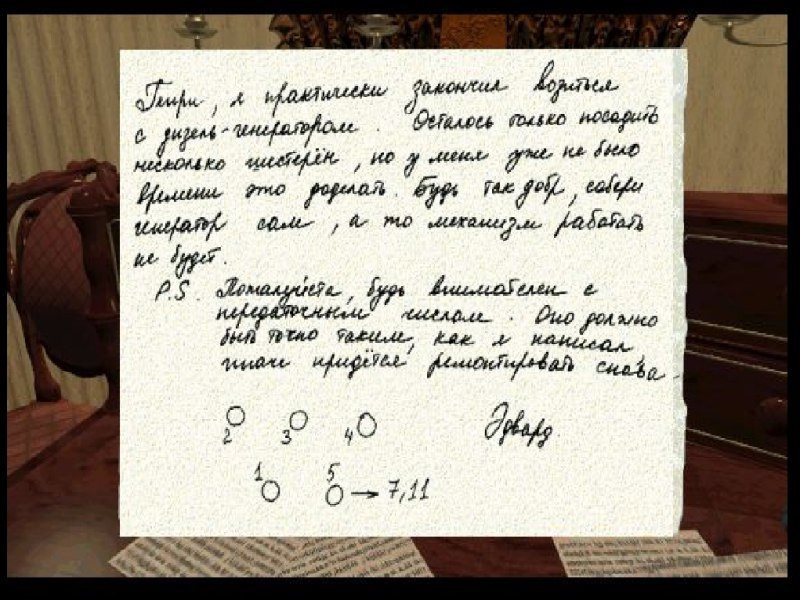 Генри, я практически закончил возиться
с дизель-генератором. Осталось только посадить
несколько цистерён, но у меня уже не было
времени это доделать. Будь так добр, собери
генератор сам, а то механизм работать
не будет.
P.S. Пожалуйста, будь внимателен с
передаточным числом. Оно должно
быть точно таким, как я написал,
иначе придётся ремонтировать снова.
2 3 4 Эдвард.
1 5 → 7,11